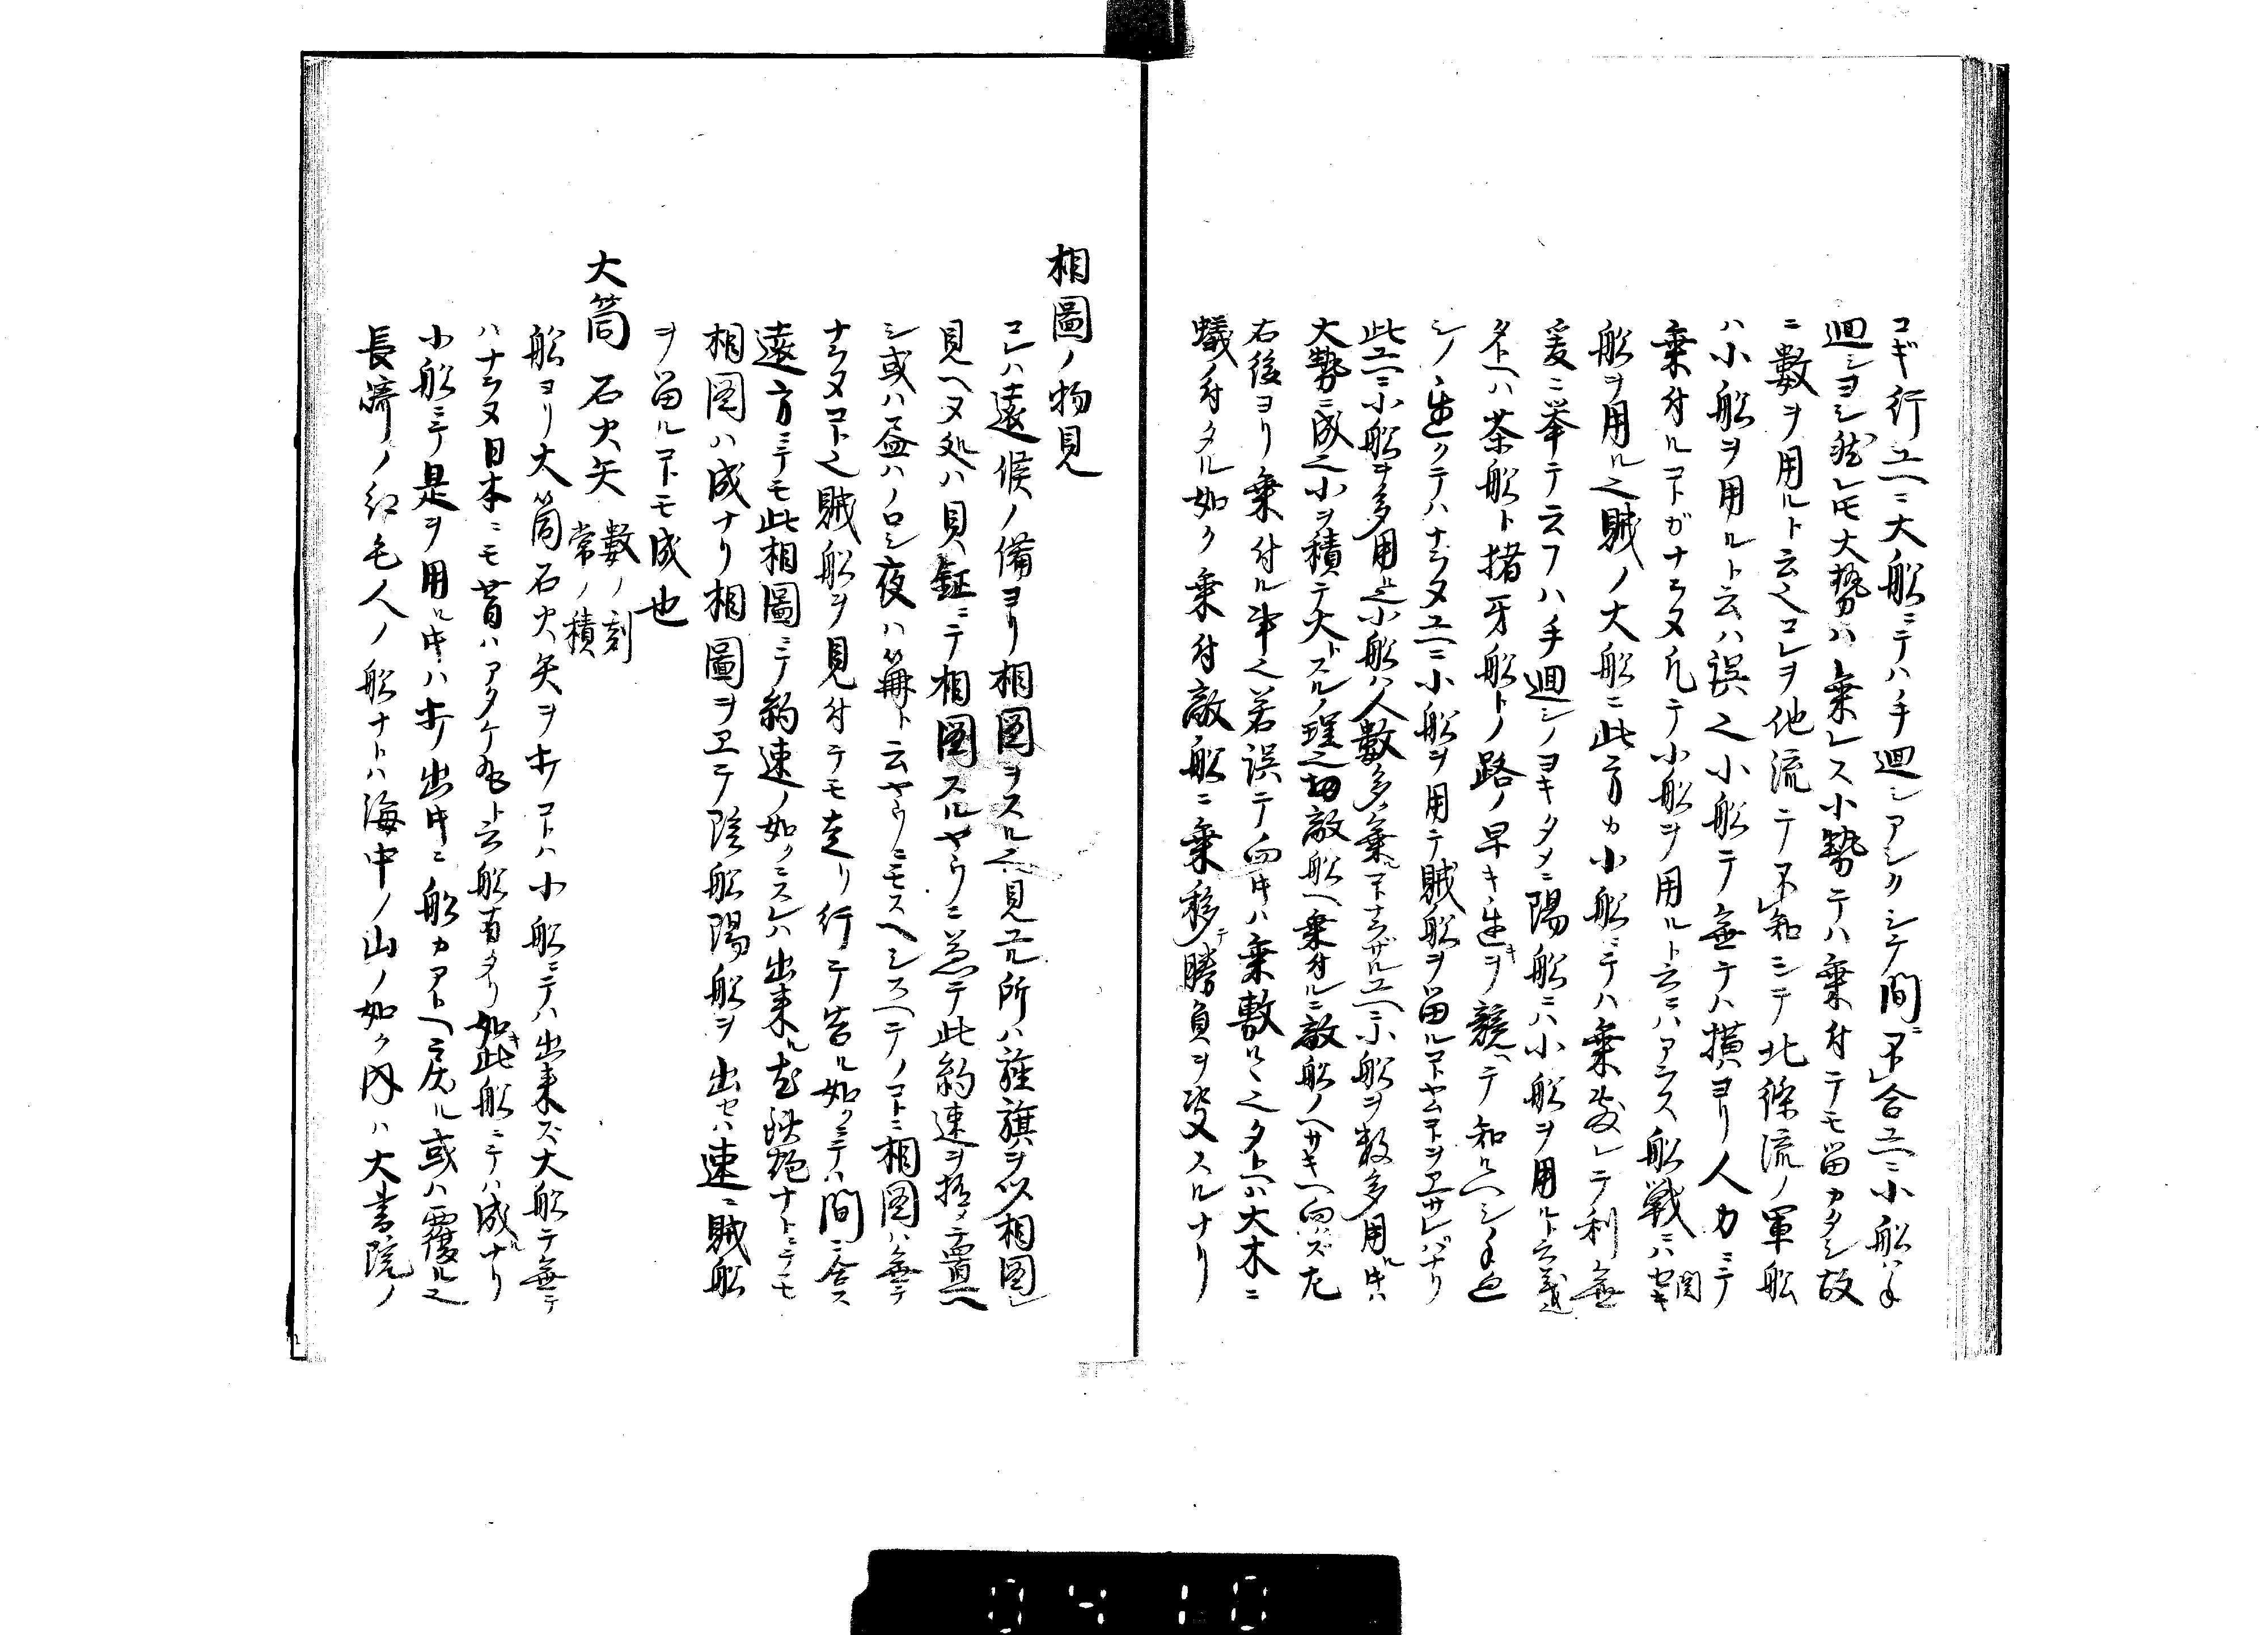 コギ行ユヘニ大船ニテハ手廻シアシクシテ間ニ不合ユヘニ小船ハ手
廻シヨシ然レ𪜈大勢ハ乗レス小勢テハ乗付テモ留カタシ故
ニ數ヲ用ルト云之コレヲ他流テ不知シテ北條流ノ軍船
ハ小船ヲ用ルト云ハ誤之小船テ無テハ横ヨリ人力ニテ
乗付ルコトガナラヌ凢テ小船ヲ用ルト云ニハアラス船戦ニハセキ関
船ヲ用ル之賊ノ大船ニ此方カ小船ニテハ乗敷レテ利無
爰ニ挙テ云フハ手廻シノヨキタメニ陽船ニハ小船ヲ用ルト云義
タトヘハ茶船ト猪牙船トノ路ノ早キ遅キヲ競ヘテ知ルヘシ手廻
シノ遅クテハナラヌユヘニ小船ヲ用テ賊船ヲ留ルコトヤムコトヲヱサレバナリ
此ユヘニ小船ヲ多用ユ之小船ハ人數多乗ルコトナラザルユヘニ小船ヲ数多用ル𪜈ハ
大勢ニ成之小ヲ積テ大トスルノ理之扨敵船ヘ乗付ルニ敵船ノヘサキヘ向ハズ左
右後ヨリ乗付ル事之若誤テ向𪜈ハ乗敷ルヽ之タトヘハ大木ニ
蟻ノ付タル如ク乗付敵船ニ乗移テ勝負ヲ決スルナリ
相圖ノ物見
コレハ遠候ノ備ヨリ相圖ヲスル之見ユル所ハ旌旗ヲ以相圖シ
見ヘヌ処ハ貝鉦ニテ相圖スルヤウニ兼テ此約速ヲ極メテ置ヘ
シ或ハ昼ハノロシ夜ハ篝ト云ヤウニモスヘシスヘテノコトニ相図ハ無テ
ナラヌコト之賊船ヲ見付テモ走リ行テ告ル如クニテハ間ニ合ス
遠方ニテモ此相圖ニテ約速ノ如クニスレハ出来ル
相図ハ成ナリ相圖ヲヱテ陰船陽船ヲ出セハ速ニ賊船
ヲ留ルコトモ成也
大筒 石火矢 數ノ刻 常ノ積
船ヨリ大筒石火矢ヲ打コトハ小船ニテハ出来ズ大船テ無テ
ハナラヌ日本ニモ昔ハアタケ丸ト云船有タリ如此キ船ニテハ成ルナリ
小船ニテ是ヲ用ル𪜈ハ打出𪜈ニ船カアトヘ戻ル或ハ覆ル之
長崎ノ紅毛人ノ船ナトハ海中ノ山ノ如ク内ハ大書院ノ